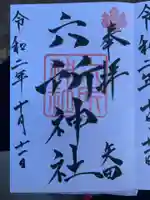 奉拝
矢田
六所神社
令和二年十月十一日